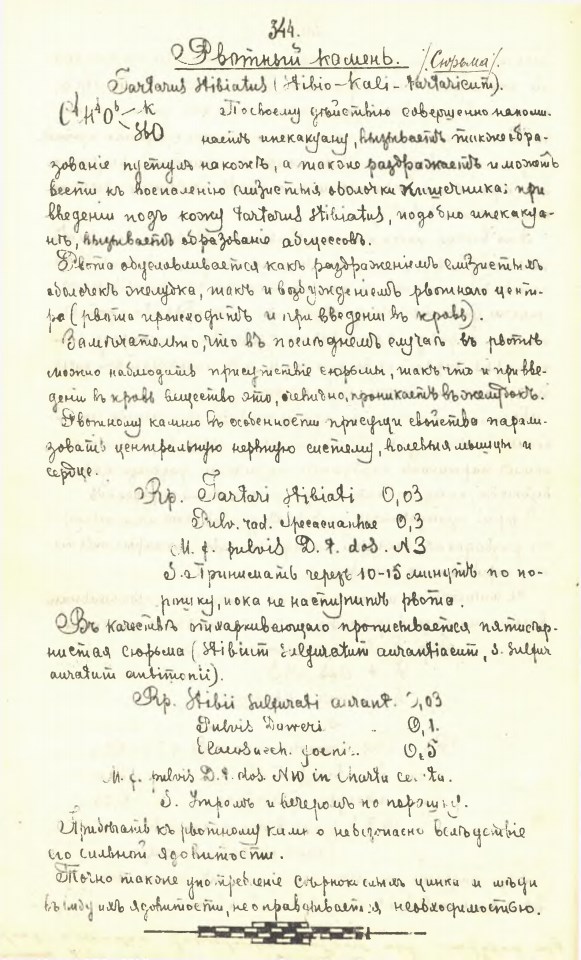 344.
Рвотный камень. /(Сюрьма)/.
Tartarus stibiatus (Stibio-Kali-tartaricum).
C⁴H⁴O⁶ K SbO По своему дѣйствію совершенно напоми-
наетъ ипекакуану, вызываетъ также обра-
зованіе пустулъ на кожѣ, а также раздражаетъ и можетъ
вести къ воспаленію слизистыя оболочки кишечника; при
введеніи подъ кожу Tartarus stibiatus, подобно ипекакуа-
нѣ, вызываетъ образованіе абсцессовъ.
Рвота обусловливается какъ раздраженіемъ слизистыхъ
оболочекъ желудка, такъ и возбужденіемъ рвотнаго цент-
ра (рвота происходитъ и при введеніи въ кровь).
Замѣчательно, что въ послѣднемъ случаѣ въ рвотѣ
можно наблюдать присутствіе сюрьмы, такъ что и при вве-
деніи въ кровь вещество это, очевидно, проникаетъ въ желудокъ.
Рвотному камню въ особенности присущи свойства парали-
зовать центральную нервную систему, волевыя мышцы и
сердце.
Rp. Tartari stibiati 0,03
Pulv. rad. Ipecacuanhae 0,3
M. f. pulvis D. t. dos. N3
S. Принимать черезъ 10-15 минутъ по по-
рошку, пока не наступитъ рвота.
Въ качествѣ отхаркивающаго прописывается пятисѣр-
нистая сюрьма (Stibium sulfuratum aurantiacum, s. sulfur
auratum antimonii).
Rp. Stibii sulfurati aurant. 0,03
Pulvis Doweri 0,1.
Elaeosacch. foeni.. 0,5
M. f. pulvis D. t. dos. N10 in charta cerata.
S. Утромъ и вечеромъ по порошку.
Прибѣгать къ рвотному камню небезопасно вслѣдствіе
его сильной ядовитости.
Точно также употребленіе сѣрнокислыхъ цинка и мѣди
въ виду ихъ ядовитости, не оправдывается необходимостью.